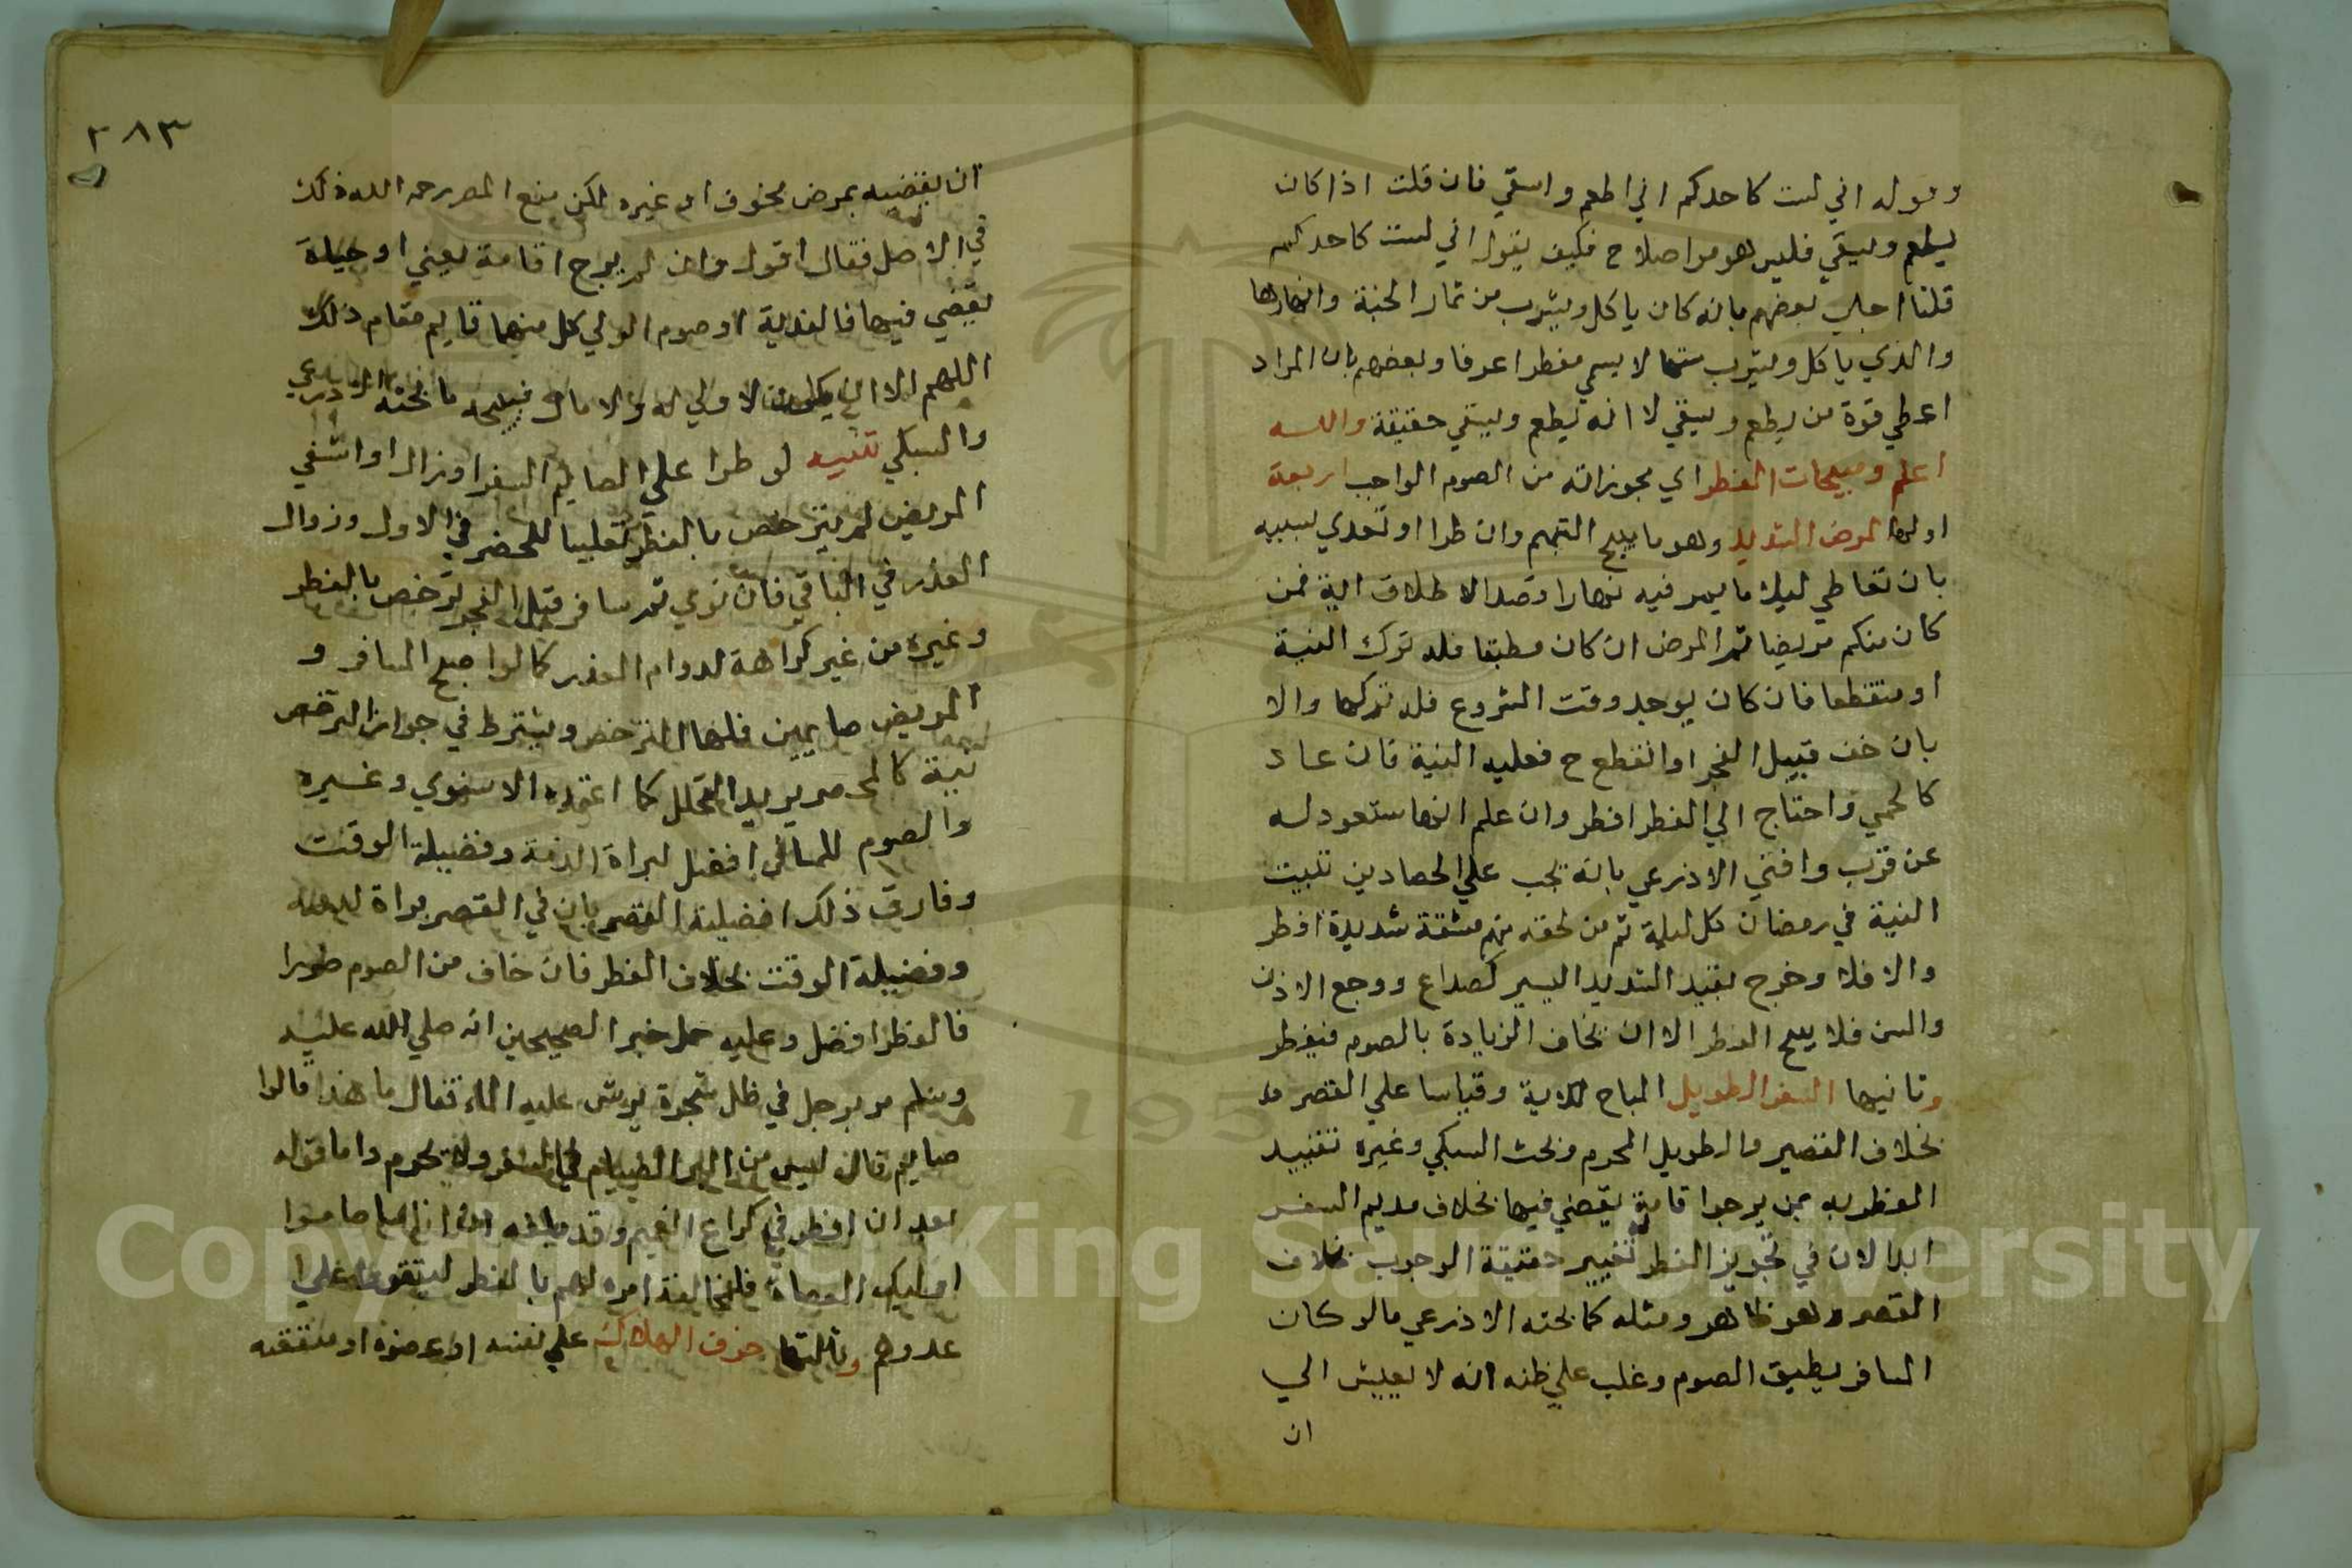 وقوله اني لست كاحدكم اني اطعم واسقي فان قلت اذا كان
يطعم ويسقي فليس هو مواصلا ح فكيف يقول اني لست كاحدكم
قلنا اجاب بعضهم بانه كان ياكل ويشرب من ثمار الجنة وانهارها
والذي ياكل ويشرب منها لا يسمي مفطرا عرفا وبعضهم بان المراد
اعطي قوة من يطعم ويسقي لا انه يطعم ويسقي حقيقة والله
اعلم ومبيحات الفطر اي مجوزاته من الصوم الواجب اربعة
اولها المرض الشديد وهو ما يبيح التيمم وان طرا او تعدي بسببه
بان تعاطي ليلا ما يمرضه نهارا قصدا لاطلاق اية فمن
كان منكم مريضا ثم المرض ان كان مطبقا فله ترك النية
او متقطعا فان كان يوجد وقت الشروع فله تركها والا
بان خف قبيل الفجر او انقطع ح فعليه النية فان عاد
كالحمي واحتاج الي الفطر افطر وان علم انها ستعود له
عن قرب وافتي الاذرعي بانه يجب علي الحصادين تبييت
النية في رمضان كل ليلة ثم من لحقه منهم مشقة شديدة افطر
والا فلا وخرج بقيد الشديد اليسير كصداع ووجع الاذن
والسن فلا يبيح الفطر الا ان يخاف الزيادة بالصوم فيفطر
وثانيها السفر الطويل المباح للاية وقياسا علي القصر
بخلاف القصير والطويل المحرم وبحث السبكي وغيره تقييد
الفطر به بمن يرجوا اقامة يقضي فيها بخلاف مديم السفر
ابدا لان في تجويز الفطر له تغيير حقيقة الوجوب بخلاف
القصر وهو ظاهر ومثله كما بحثه الاذرعي ما لو كان
المسافر يطيق الصوم وغلب علي ظنه انه لا يعيش الي
ان
٢٨٣
ان يقضيه بمرض مخوف او غيره لكن منع المصر رحمه الله ذلك
في الاصل فقال اقول وان لم يرج اقامة يعني او حياة
يقضي فيها فالفدية او صوم الولي كل منهما قايم مقام ذلك
اللهم الا ان يكون لا ولي له ولا مال فيتجه ما بحثه الاذرعي
والسبكي تنبيه لو طرا علي الصايم السفر اوزال او اشفي
المريض لم يترخص بالفطر تغليبا للحضر في الاول وزوال
العذر في الباقي فان نوي ثم سافر قبل الفجر ترخص بالفطر
وغيره من غير كراهة لدوام العذر كما لو اصبح المسافر و
المريض صايمين فلهما الترخص ويشترط في جواز الترخص
نيته كالمحصر يريد التحلل كما اعتمده الاسنوي وغيره
والصوم للمسافر افضل لبراة الذمة وفضيلة الوقت
وفارق ذلك افضلية القصر بان في القصر براة للذمة
وفضيلة الوقت بخلاف الفطر فان خاف من الصوم ضررا
فالفطر افضل وعليه حمل خبر الصحيحين انه صلي الله عليه
وسلم مر برجل في ظل شجرة يرش عليه الماء فقال ما هذا قالوا
صايم قال ليس من البر الصيام في السفر ولا يحرم واما قوله
بعد ان افطر في كراع الغميم وقد بلغه ان اناسا صاموا
اوليك العصاة فلمخالفة امره لهم بالفطر ليتقووا علي
عدوهم وثالثها خوف الهلاك علي نفسه او عضوه او منفعته